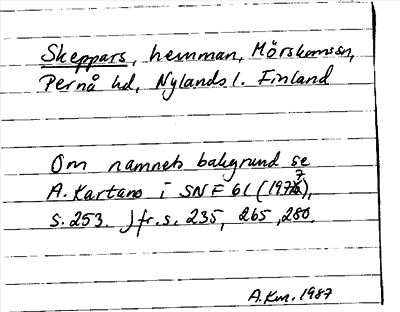 Skeppars, hemman, Mörskoms sn,
Pernå hd, Nylands l. Finland
Om namnets bakgrund se
A. Kartano i SNF 61 (1977),
s. 253. Jfr. s. 235, 265, 280.
A.Km. 1987